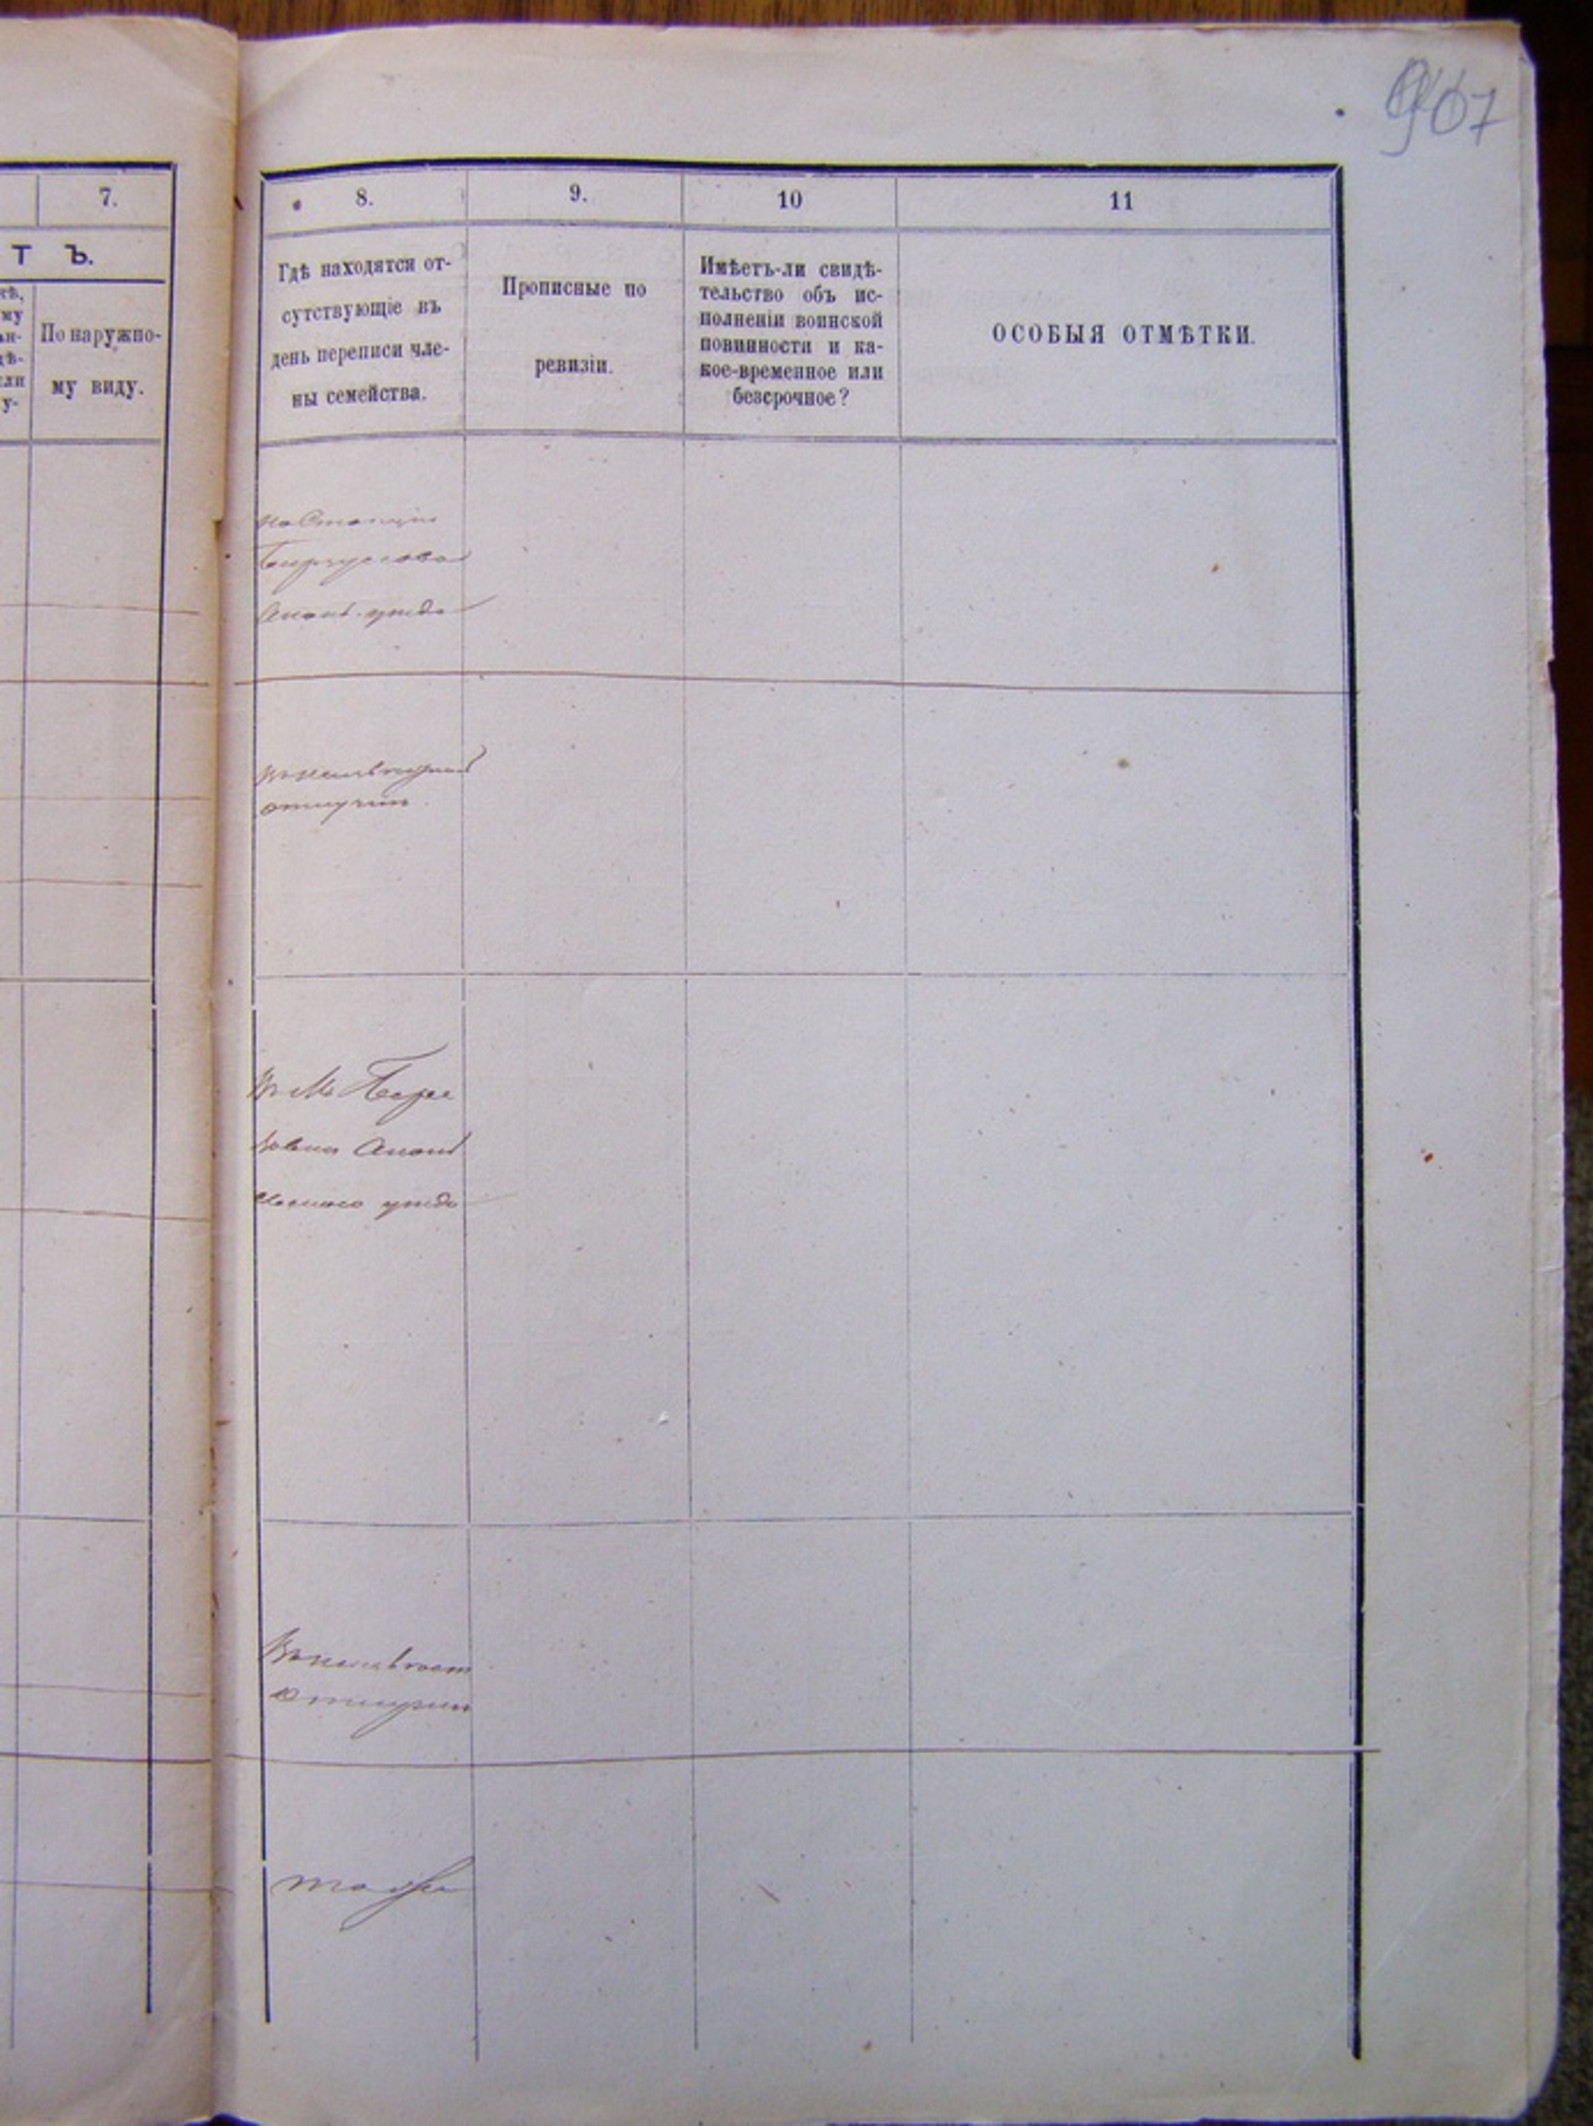 907
7.
Т Ъ.
По наружно-
му виду.
8.
9.
10
11
Гдѣ находятся от-
сутствующіе въ
день переписи чле-
ны семейства.
Прописные по
ревизіи.
Имѣетъ-ли свидѣ-
тельство объ ис-
полненіи воинской
повинности и ка-
кое-временное или
безсрочное?
ОСОБЫЯ ОТМѢТКИ.
на Станціи
Ананьев. уезда
отлучки.
въ М. Бере
зовки Анань
евскаго уезда
отлучки
тоже